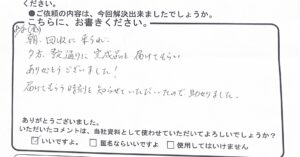 ください。
●ご依頼の内容は、今回解決出来ましたでしょうか。
こちらに、お書きください。
朝、回収に来られ、
夕方、予定通りに完成品を届けてもらい
ありがとうございました！
届けてもらう時刻を知らせていただいたので助かりました。
ありがとうございました。
いただいたコメントは、当社資料として使わせていただいてよろしいでしょうか？
☑いいですよ。 □匿名ならいいですよ □使用してはいけません